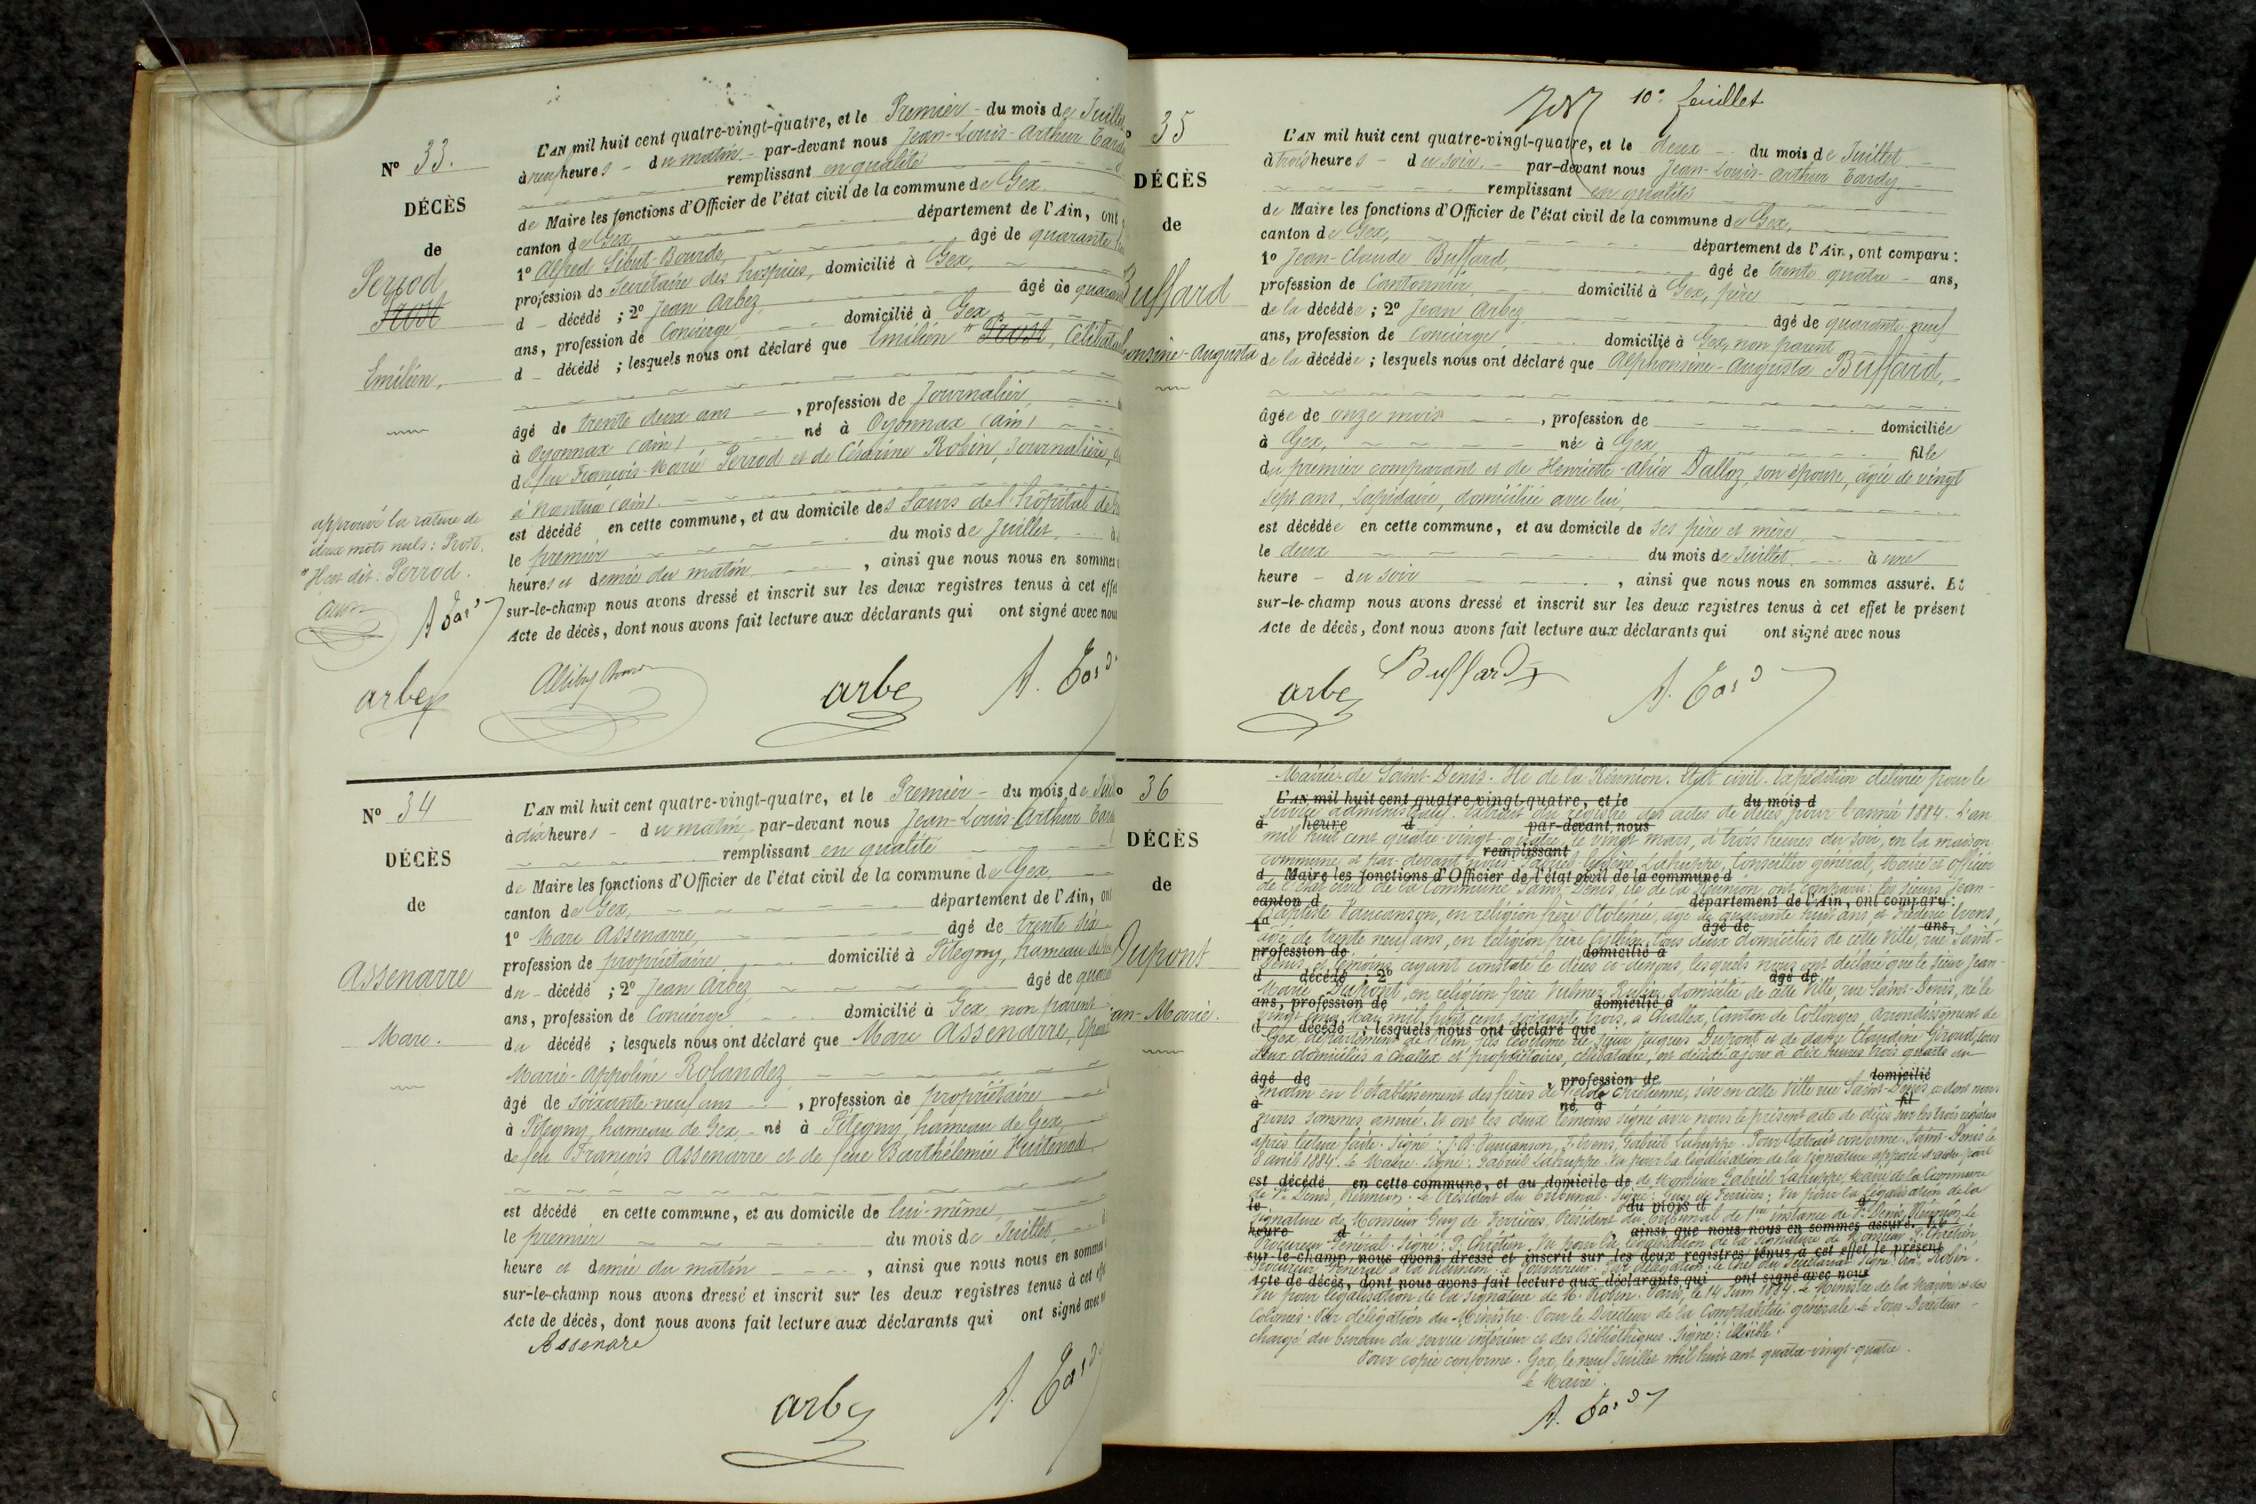 N° 33.
DÉCÈS
de
Perrod
Prost
Emilien,
approuvé la rature de
deux mots nuls : Prost.
Il est dit : Perrod.
A. Tardy
arbez
L'AN mil huit cent quatre-vingt-quatre, et le Premier du mois de Juillet
à neuf heures du matin par-devant nous Jean-Louis-Arthur Tardy
remplissant en qualité
de Maire les fonctions d'Officier de l'état civil de la commune de Gex
canton de Gex, département de l'Ain, ont
1° Alfred Sibut-Bourde, âgé de quarante
profession de Secrétaire des hospices, domicilié à Gex,
d décédé ; 2° Jean Arbez, âgé de quarante
ans, profession de Concierge domicilié à Gex,
d décédé ; lesquels nous ont déclaré que Emilien Prost, Célibataire
âgé de trente deux ans, profession de Journalier,
à Oyonnax (ain) né à Oyonnax (ain)
de feu François-Marie Perrod et de Césarine Robin, Journalière,
à Nantua (ain).
est décédé en cette commune, et au domicile des Sœurs de l'hôpital de Gex
le premier du mois de Juillet, à
heures et demie du matin, ainsi que nous nous en sommes
sur-le-champ nous avons dressé et inscrit sur les deux registres tenus à cet effet
Acte de décès, dont nous avons fait lecture aux déclarants qui ont signé avec nous
arbez A. Tardy
N° 34
DÉCÈS
de
Assenarre
Marc.
L'AN mil huit cent quatre-vingt-quatre, et le Premier du mois de Juillet
à dix heures du matin par-devant nous Jean-Louis-Arthur Tardy
remplissant en qualité
de Maire les fonctions d'Officier de l'état civil de la commune de Gex,
canton de Gex, département de l'Ain, ont
1° Marc Assenarre, âgé de trente six
profession de propriétaire domicilié à Pitegny, hameau de Gex
du décédé ; 2° Jean Arbez âgé de quarante
ans, profession de Concierge domicilié à Gex, non parent
du décédé ; lesquels nous ont déclaré que Marc Assenarre, époux
Marie-Appoline Rolandez
âgé de soixante-neuf ans, profession de propriétaire
à Pitegny, hameau de Gex, né à Pitegny, hameau de Gex,
de feu François Assenarre et de feue Barthélemie Huitenod
est décédé en cette commune, et au domicile de lui-même,
le premier du mois de Juillet,
heure et demie du matin, ainsi que nous nous en sommes
sur-le-champ nous avons dressé et inscrit sur les deux registres tenus à cet effet
Acte de décès, dont nous avons fait lecture aux déclarants qui ont signé avec nous
Assenare
arbez A. Tardy
10e feuillet
35
DÉCÈS
de
Buffard
onsine-Augusta
L'AN mil huit cent quatre-vingt-quatre, et le deux du mois de Juillet
à trois heures du soir par-devant nous Jean-Louis-Arthur Tardy
remplissant en qualité
de Maire les fonctions d'Officier de l'état civil de la commune de Gex,
canton de Gex, département de l'Ain, ont comparu :
1° Jean-Claude Buffard, âgé de trente quatre ans,
profession de Cantonnier domicilié à Gex, père
de la décédée ; 2° Jean Arbez âgé de quarante-neuf
ans, profession de Concierge domicilié à Gex, non parent
de la décédée ; lesquels nous ont déclaré que Alphonsine-Augusta Buffard,
âgée de onze mois, profession de domiciliée
à Gex, née à Gex fille
du premier comparant et de Henriette-Alice Dalloz, son épouse, âgée de vingt
sept ans, Lapidaire, domiciliée avec lui,
est décédée en cette commune, et au domicile de ses père et mère,
le deux du mois de Juillet à une
heure du soir, ainsi que nous nous en sommes assuré. Et
sur-le-champ nous avons dressé et inscrit sur les deux registres tenus à cet effet le présent
Acte de décès, dont nous avons fait lecture aux déclarants qui ont signé avec nous
arbez Buffard A. Tardy
36
DÉCÈS
de
Dupont
an-Marie.
Mairie de Saint-Denis. Ile de la Réunion. Etat civil. Expédition délivrée pour le
L'AN mil huit cent quatre-vingt-quatre, et le du mois d
service administratif. Extrait du registre des actes de décès pour l'année 1884. L'an
à heure d par-devant nous
mil huit cent quatre-vingt-quatre, le vingt mars, à trois heures du soir, en la maison
remplissant
commune et par-devant nous Gabriel Lahuppe, Conseiller général, Maire et officier
d Maire les fonctions d'Officier de l'état civil de la commune d
de l'état civil de la Commune Saint-Denis, ile de la Réunion, ont comparu : les sieurs Jean-
canton d département de l'Ain, ont comparu :
Baptiste Vaucanson, en religion frère Ptolémée, âgé de quarante huit ans et Frédéric
1° âgé de ans,
âgé de trente neuf ans, en religion frère tous deux domiciliés de cette Ville, rue Saint-
profession de domicilié à
Denis, et témoins ayant constaté le décès ci-dessous, lesquels nous ont déclaré que le sieur Jean-
d décédé ; 2° âgé de
Marie Dupont, en religion frère domicilié de cette Ville, rue Saint-Denis, né le
ans, profession de domicilié à
vingt cinq Mai mil huit cent soixante trois, à Challex, Canton de Collonges, Arrondissement de
d décédé ; lesquels nous ont déclaré que
Gex, département de l'Ain, fils légitime de sieur Jacques Dupont et de dame Claudine Giroud, tous
deux domiciliés à Challex et propriétaires, célibataire, est décédé ce jour à dix heures trois quarts du
âgé de profession de domicilié
matin en l'établissement des frères de l'école Chrétienne, sise en cette Ville rue Saint-Denis, ce dont nous
à né à fil
nous sommes assuré. Et ont les deux témoins signé avec nous le présent acte de décès sur les trois registres
après lecture faite. Signé : J. B. Vaucanson, Gabriel Lahuppe. Pour Extrait conforme. Saint-Denis le
8 avril 1884. Le Maire. Signé : Gabriel Lahuppe. Vu pour la légalisation de la signature apposée d'autre part
est décédé en cette commune, et au domicile de
de Monsieur Gabriel Lahuppe, Maire de la Commune
de St Denis, Réunion. Le Président du Tribunal. Signé : Guy de Ferrières ; Vu pour la légalisation de la
le du mois d à
signature de Monsieur Guy de Ferrières, Président du Tribunal de 1ère instance de St Denis, Réunion, le
heure d ainsi que nous nous en sommes assuré. Et
Procureur Général. Signé : P. Chrétien. Vu pour la légalisation de la signature de Monsieur P. Chrétien,
sur-le-champ nous avons dressé et inscrit sur les deux registres tenus à cet effet le présent
Procureur Général à la Réunion. Le Gouverneur. Par délégation : Le Chef du Secrétariat. Signé : Robin.
Acte de décès, dont nous avons fait lecture aux déclarants qui ont signé avec nous
Vu pour légalisation de la signature de M. Robin. Paris, le 14 Juin 1884. Le Ministre de la Marine et des
Colonies. Par délégation du Ministre. Pour le Directeur de la Comptabilité générale. Le Sous-Directeur
chargé du bureau du service intérieur et des Bibliothèques. Signé : illisible.
Pour copie conforme. Gex, le neuf Juillet mil huit cent quatre-vingt-quatre.
Le Maire.
A. Tardy